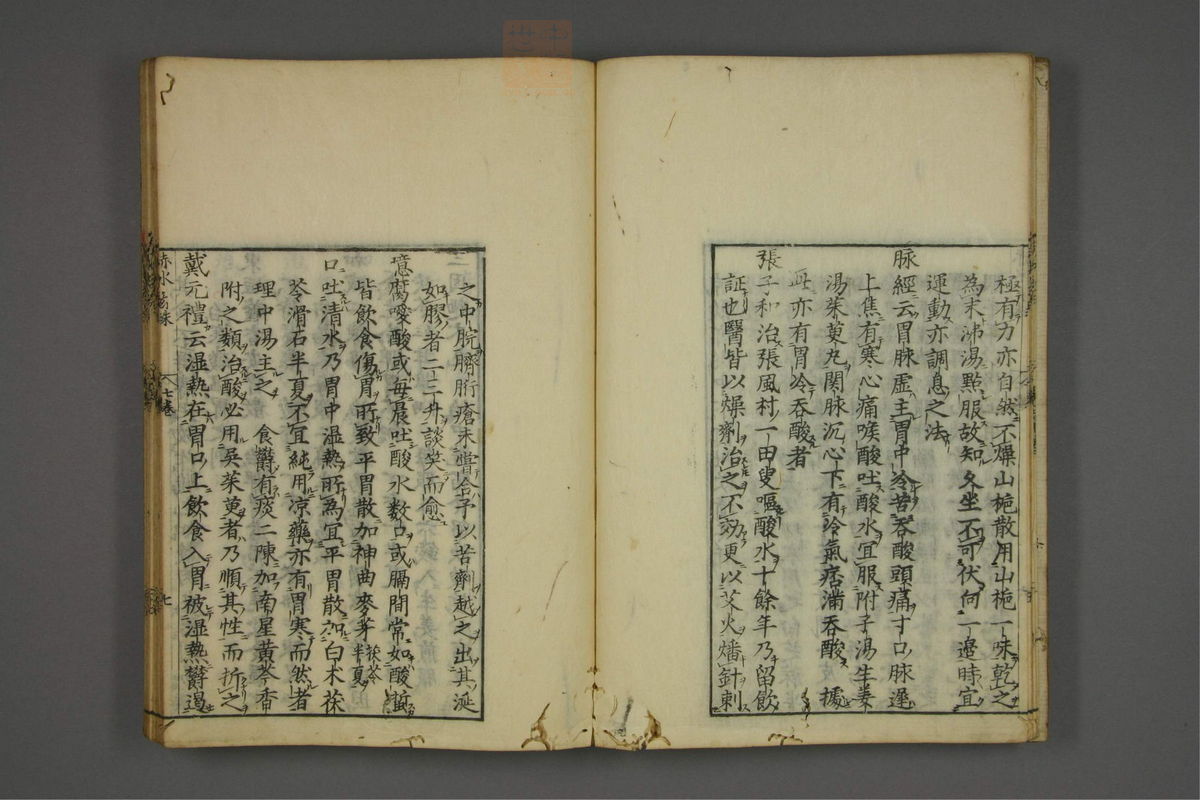 極有力亦自然不燥山梔散用山梔一味乾之
為末沸湯點服故知久坐不可伏向一邉時宜
運動亦調息之法
脉經云胃脉虚主胃中冷苦吞酸頭痛寸口脉遲
上焦有寒心痛喉酸吐酸水宜服附子湯生姜
湯茱萸丸関脉沉心下有冷氣痞滿吞酸 據
此亦有胃冷吞酸者
張子和治張風村一田叟嘔酸水十餘年乃留飲
証也醫皆以燥劑治之不効更以艾火燔針刺
之中脘臍胻瘡未嘗合予以苦劑越之出其涎
如膠者二三升談笑而愈
噫腐噯酸或每晨吐酸水数口或膈間常如酸蜇
皆飲食傷胃所致平胃散加神曲麥芽茯苓半夏
口吐清水乃胃中湿熱所為宜平胃散加白朮茯
苓滑石半夏不宜純用凉藥亦有胃寒而然者
理中湯主之 食欝有痰二陳加南星黄芩香
附之類治酸必用吳茱萸者乃順其性而折之
戴元禮云湿熱在胃口上飲食入胃被湿熱欝遏
赤水玄珠
七卷
七